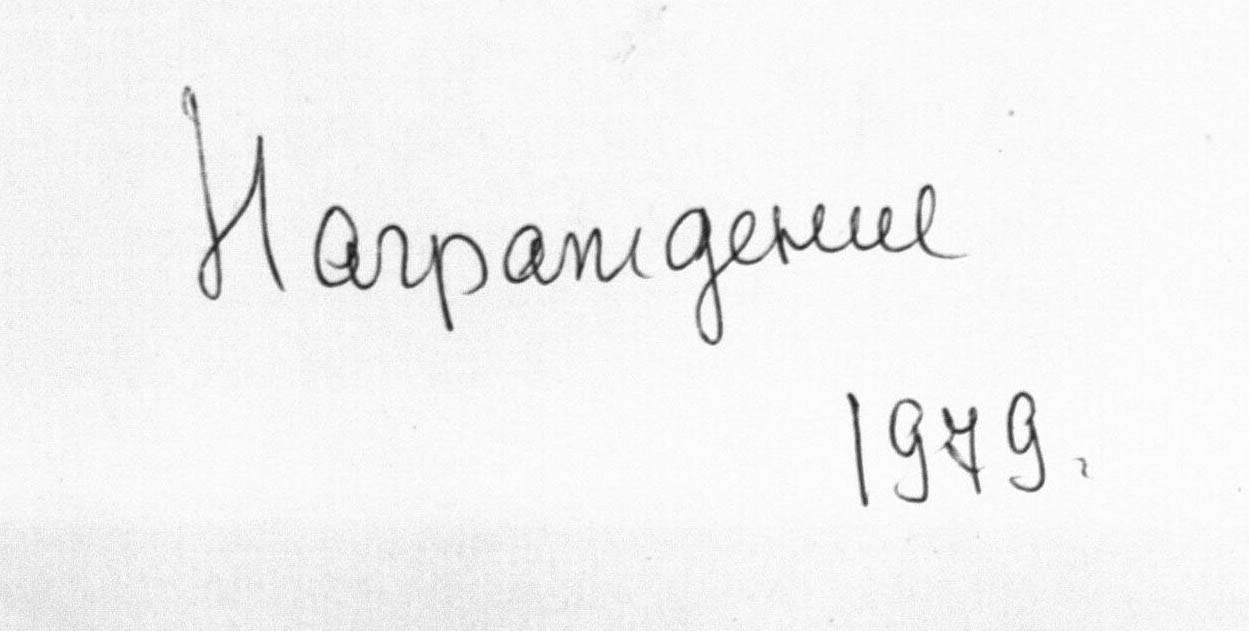 Награждение
1979.